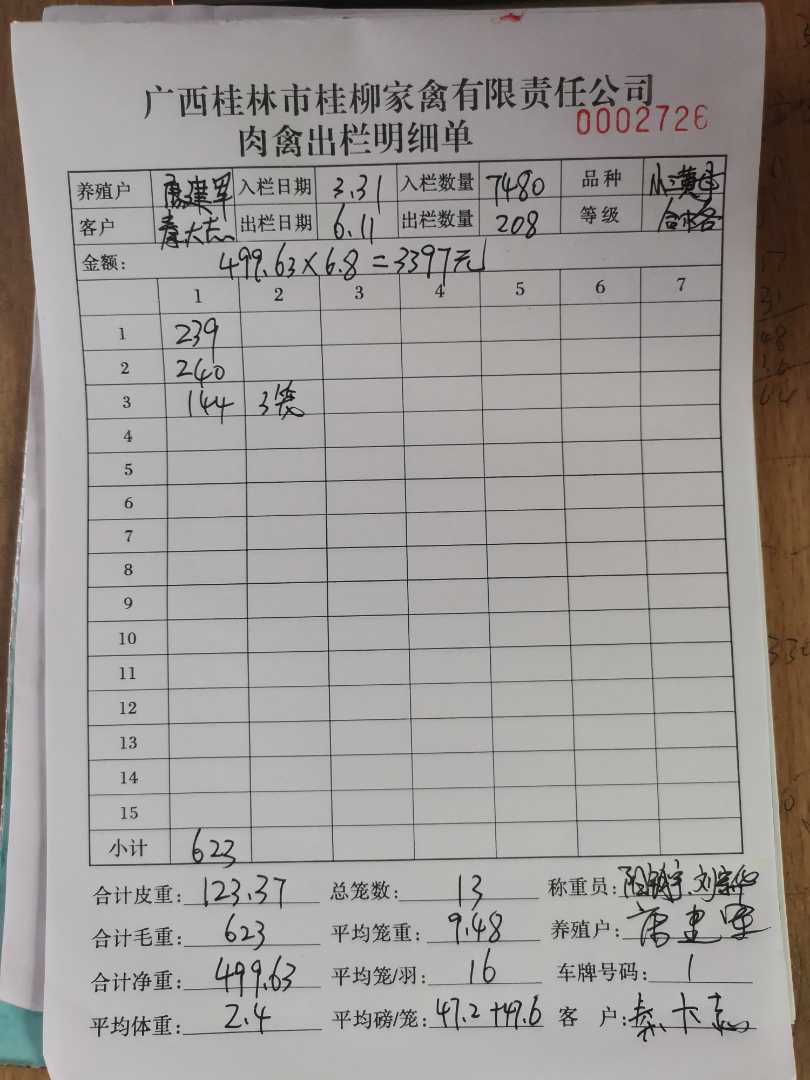 广西桂林市桂柳家禽有限责任公司
肉禽出栏明细单
0002726
养殖户 建军 入栏日期 3.31 入栏数量 7480 品种 小黄
客户 秦大志 出栏日期 6.11 出栏数量 208 等级 合格
金额: 499.63×6.8=3397元
1 2 3 4 5 6 7
1 239
2 240
3 144 3笼
4
5
6
7
8
9
10
11
12
13
14
15
小计 623
合计皮重: 123.37 总笼数: 13 称重员:
合计毛重: 623 平均笼重: 9.48 养殖户: 建军
合计净重: 499.63 平均笼/羽: 16 车牌号码: 1
平均体重: 2.4 平均磅/笼: 47.2+47.6 客 户: 秦大志